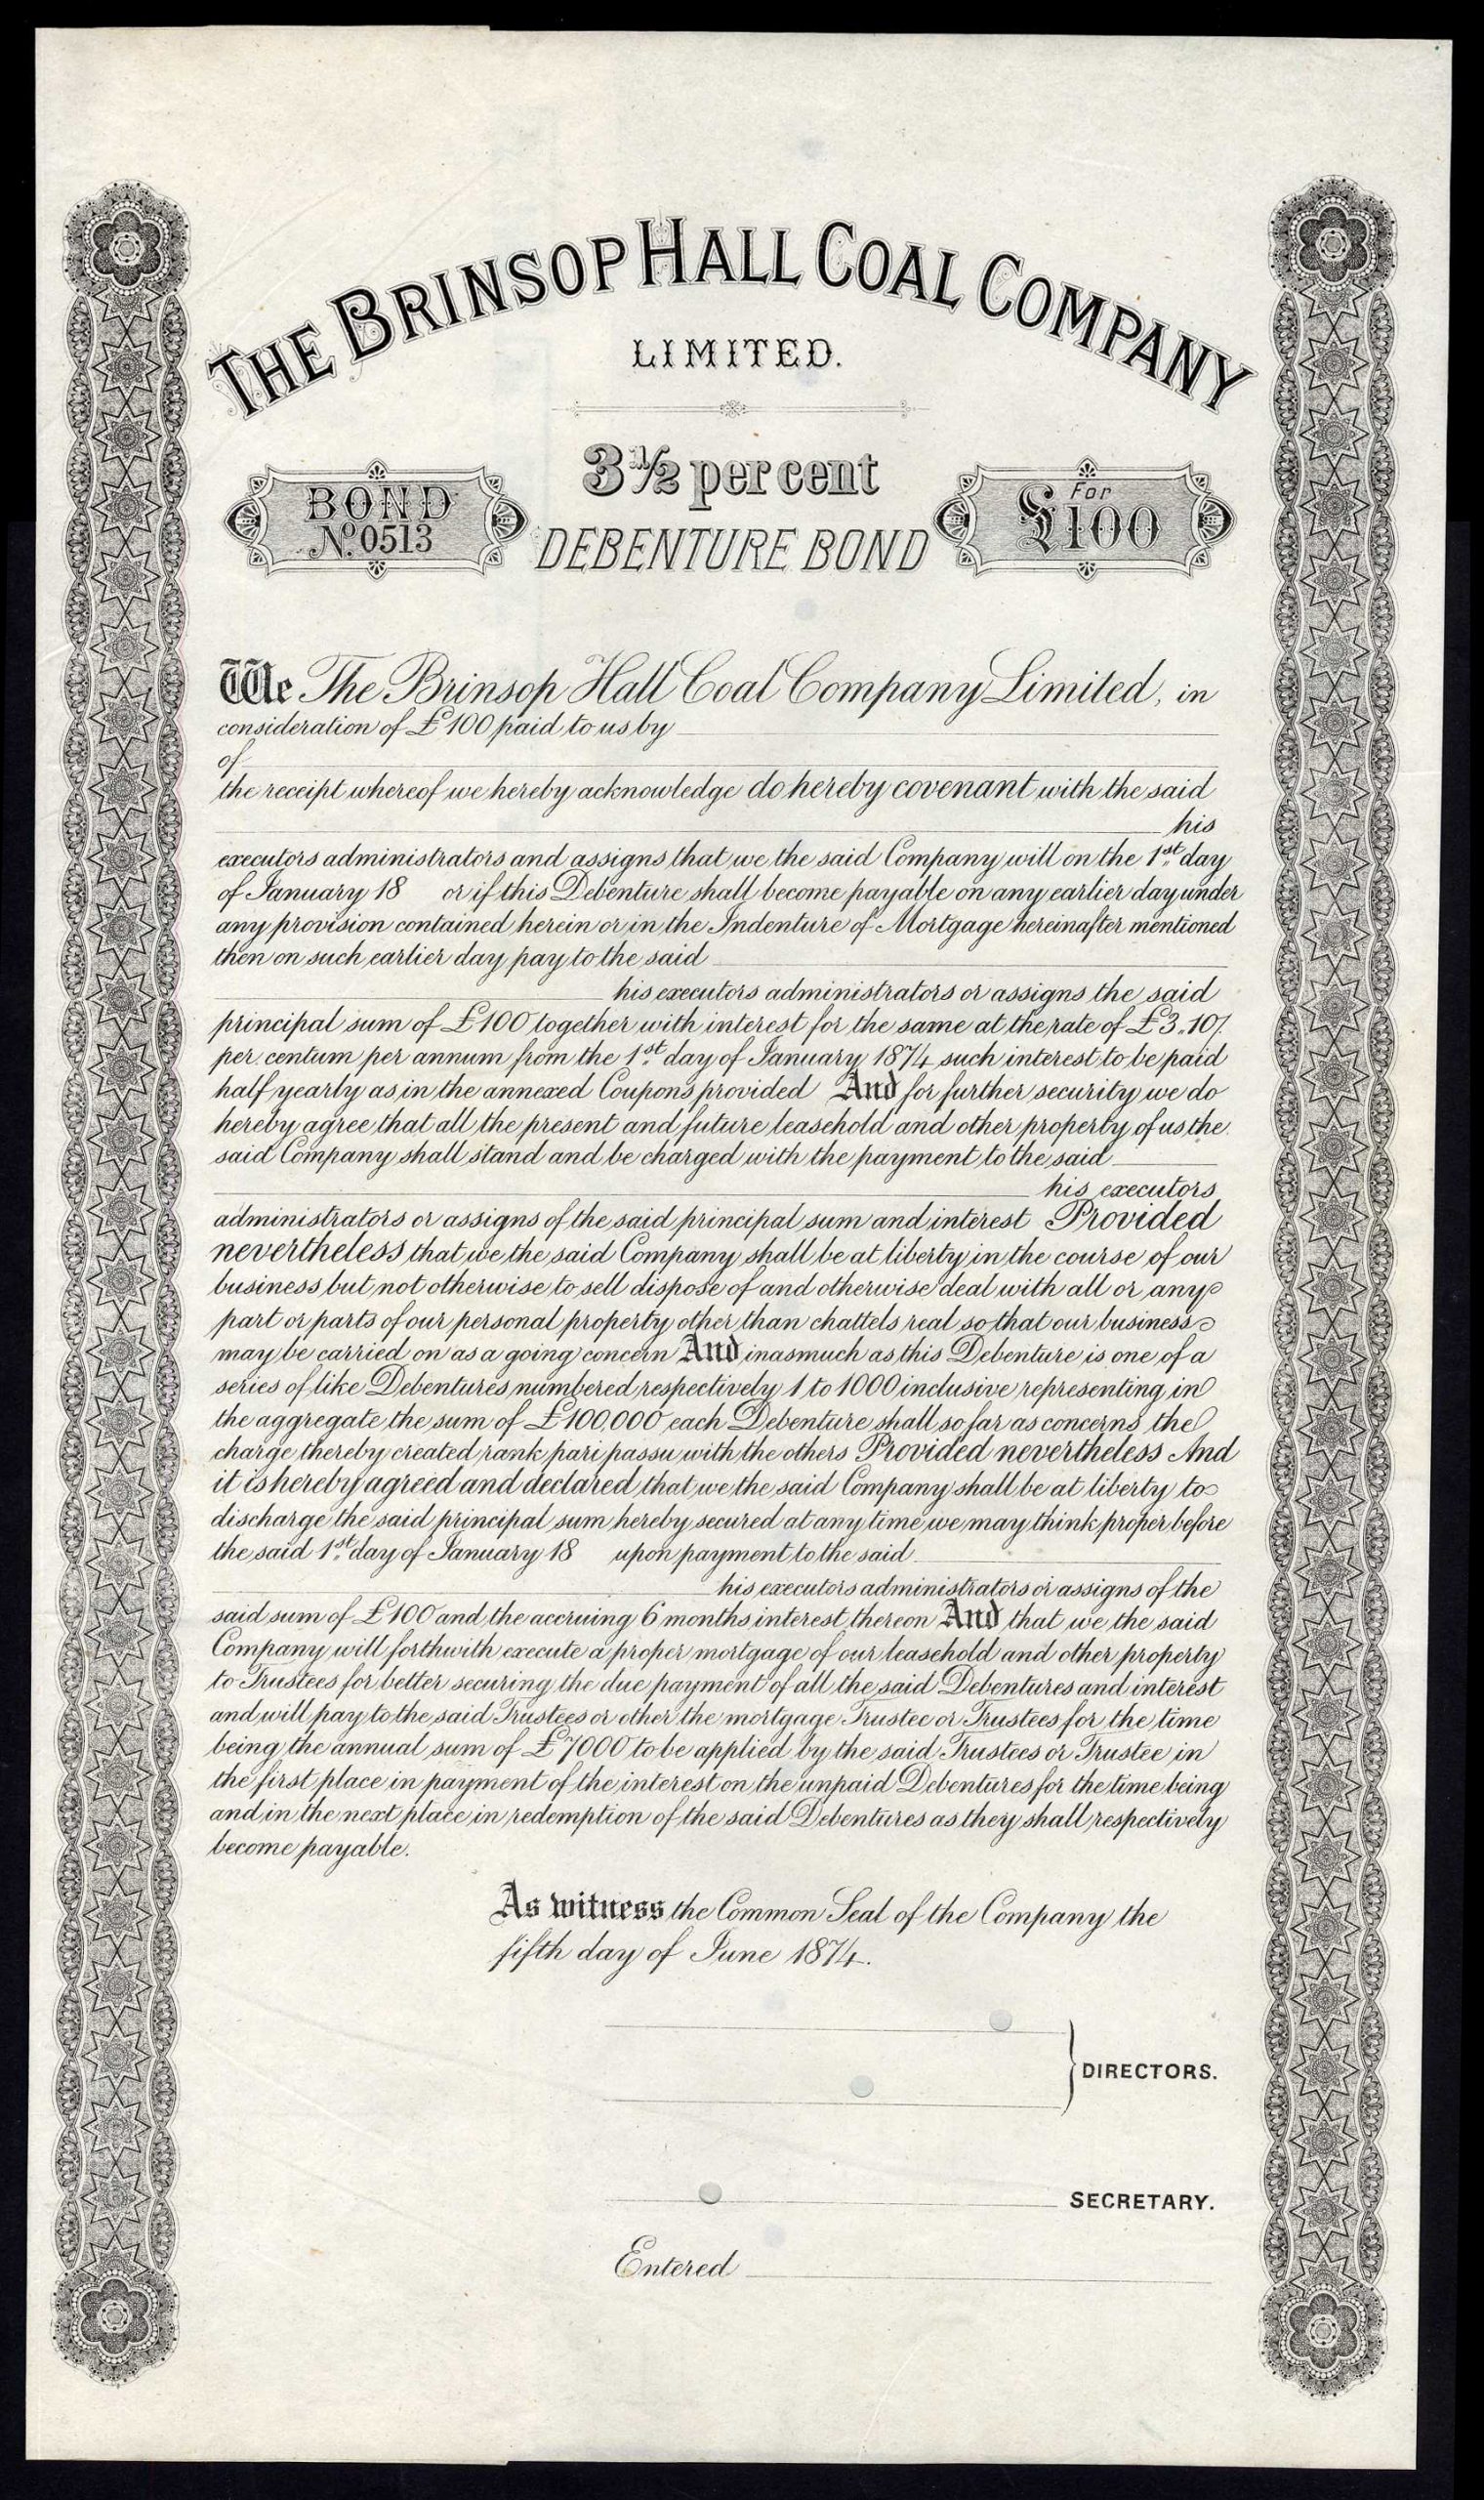 THE BRINSOP HALL COAL COMPANY
LIMITED.
3½ per cent
BOND
No. 0513
DEBENTURE BOND
For
£100
We The Brinsop Hall Coal Company Limited, in
consideration of £100 paid to us by
of
the receipt whereof we hereby acknowledge do hereby covenant with the said
his
executors administrators and assigns that we the said Company will on the 1st day
of January 18 or if this Debenture shall become payable on any earlier day under
any provision contained herein or in the Indenture of Mortgage hereinafter mentioned
then on such earlier day pay to the said
his executors administrators or assigns the said
principal sum of £100 together with interest for the same at the rate of £3.,10/.
per centum per annum from the 1st day of January 1874 such interest to be paid
half yearly as in the annexed Coupons provided And for further security we do
hereby agree that all the present and future leasehold and other property of us the
said Company shall stand and be charged with the payment to the said
his executors
administrators or assigns of the said principal sum and interest Provided
nevertheless that we the said Company shall be at liberty in the course of our
business but not otherwise to sell dispose of and otherwise deal with all or any
part or parts of our personal property other than chattels real so that our business
may be carried on as a going concern And inasmuch as this Debenture is one of a
series of like Debentures numbered respectively 1 to 1000 inclusive representing in
the aggregate the sum of £100,000 each Debenture shall so far as concerns the
charge thereby created rank pari passu with the others Provided nevertheless And
it is hereby agreed and declared that we the said Company shall be at liberty to
discharge the said principal sum hereby secured at any time we may think proper before
the said 1st day of January 18 upon payment to the said
his executors administrators or assigns of the
said sum of £100 and the accruing 6 months interest thereon And that we the said
Company will forthwith execute a proper mortgage of our leasehold and other property
to Trustees for better securing the due payment of all the said Debentures and interest
and will pay to the said Trustees or other the mortgage Trustee or Trustees for the time
being the annual sum of £7000 to be applied by the said Trustees or Trustee in
the first place in payment of the interest on the unpaid Debentures for the time being
and in the next place in redemption of the said Debentures as they shall respectively
become payable.
As witness the Common Seal of the Company the
fifth day of June 1874.
DIRECTORS.
SECRETARY.
Entered